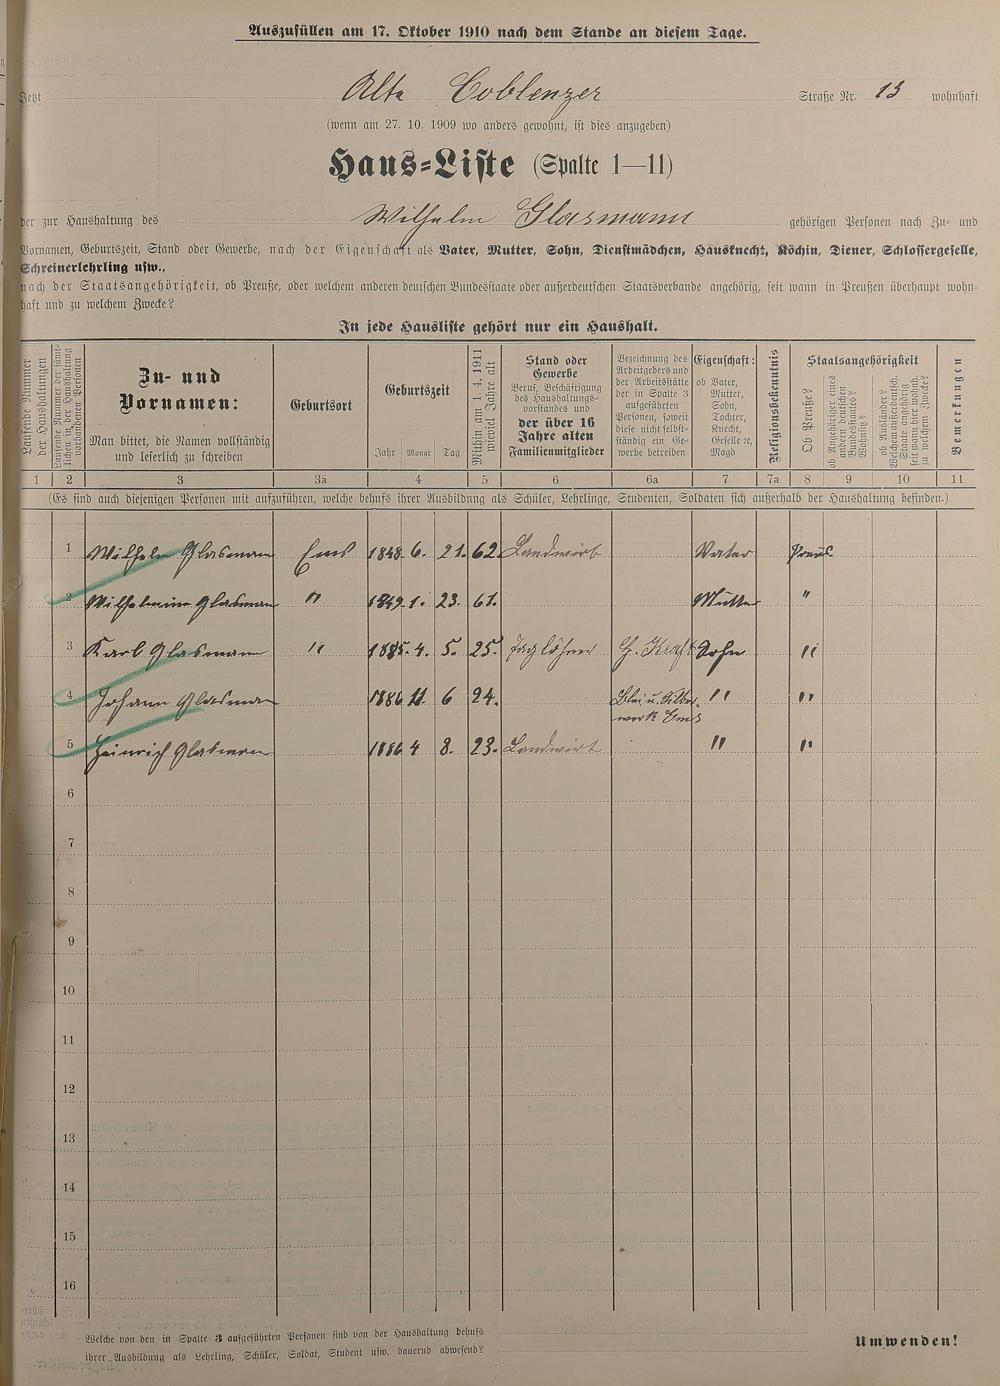 Auszufüllen am 17. Oktober 1910 nach dem Stande an diesem Tage.
Jetzt Alte Coblenzer Straße Nr. 13 wohnhaft
(wenn am 27. 10. 1909 wo anders gewohnt, ist dies anzugeben)
Haus-Liste (Spalte 1—11)
der zur Haushaltung des Wilhelm Glasmann gehörigen Personen nach Zu- und
Vornamen, Geburtszeit, Stand oder Gewerbe, nach der Eigenschaft als Vater, Mutter, Sohn, Dienstmädchen, Hausknecht, Köchin, Diener, Schlossergeselle,
Schreinerlehrling usw.,
nach der Staatsangehörigkeit, ob Preuße, oder welchem anderen deutschen Bundesstaate oder außerdeutschen Staatsverbande angehörig, seit wann in Preußen überhaupt wohn-
haft und zu welchem Zwecke?
In jede Hausliste gehört nur ein Haushalt.
Laufende Nummer der Haushaltungen
Laufende Nummer der sämt-
lichen in der Haushaltung
vorhandenen Personen
Zu- und
Vornamen:
Man bittet, die Namen vollständig
und leserlich zu schreiben
Geburtsort
Geburtszeit
Jahr Monat Tag
Mithin am 1. 4. 1911
wieviel Jahre alt
Stand oder
Gewerbe
Beruf, Beschäftigung
des Haushaltungs-
vorstandes und
der über 16
Jahre alten
Familienmitglieder
Bezeichnung des
Arbeitgebers und
der Arbeitsstätte
der in Spalte 3
aufgeführten
Personen, soweit
diese nicht selbst-
ständig ein Ge-
werbe betreiben
Eigenschaft:
ob Vater,
Mutter,
Sohn,
Tochter,
Knecht,
Geselle 2c,
Magd
Religionsbekenntnis
Staatsangehörigkeit
Ob Preuße?
ob Angehöriger eines
andern deutschen
Bundesstaates?
Wohnsitz?
ob Ausländer?
Welchem außerdeutsch.
Staate angehörig
seit wann hier wohnh.
zu welchem Zwecke?
Bemerkungen
1 2 3 3a 4 5 6 6a 7 7a 8 9 10 11
(Es sind auch diejenigen Personen mit aufzuführen, welche behufs ihrer Ausbildung als Schüler, Lehrlinge, Studenten, Soldaten sich außerhalb der Haushaltung befinden.)
1 Wilhelm Glasmann Ems 1848 6. 21. 62 Landwirt Vater Preus.
2 Wilhelmine Glasmann " 1849. 1. 23. 61. Mutter "
3 Karl Glasmann " 1885. 4. 5. 25. Taglöhner H. Kraft Sohn "
4 Johann Glasmann 1886 11. 6 24. Blei u. Silber- " "
werk Ems
5 Heinrich Glasmann 1886 4 8. 23. Landwirt " "
6
7
8
9
10
11
12
13
14
15
16
Welche von den in Spalte 3 aufgeführten Personen sind von der Haushaltung behufs
ihrer Ausbildung als Lehrling, Schüler, Soldat, Student usw. dauernd abwesend?
Umwenden!